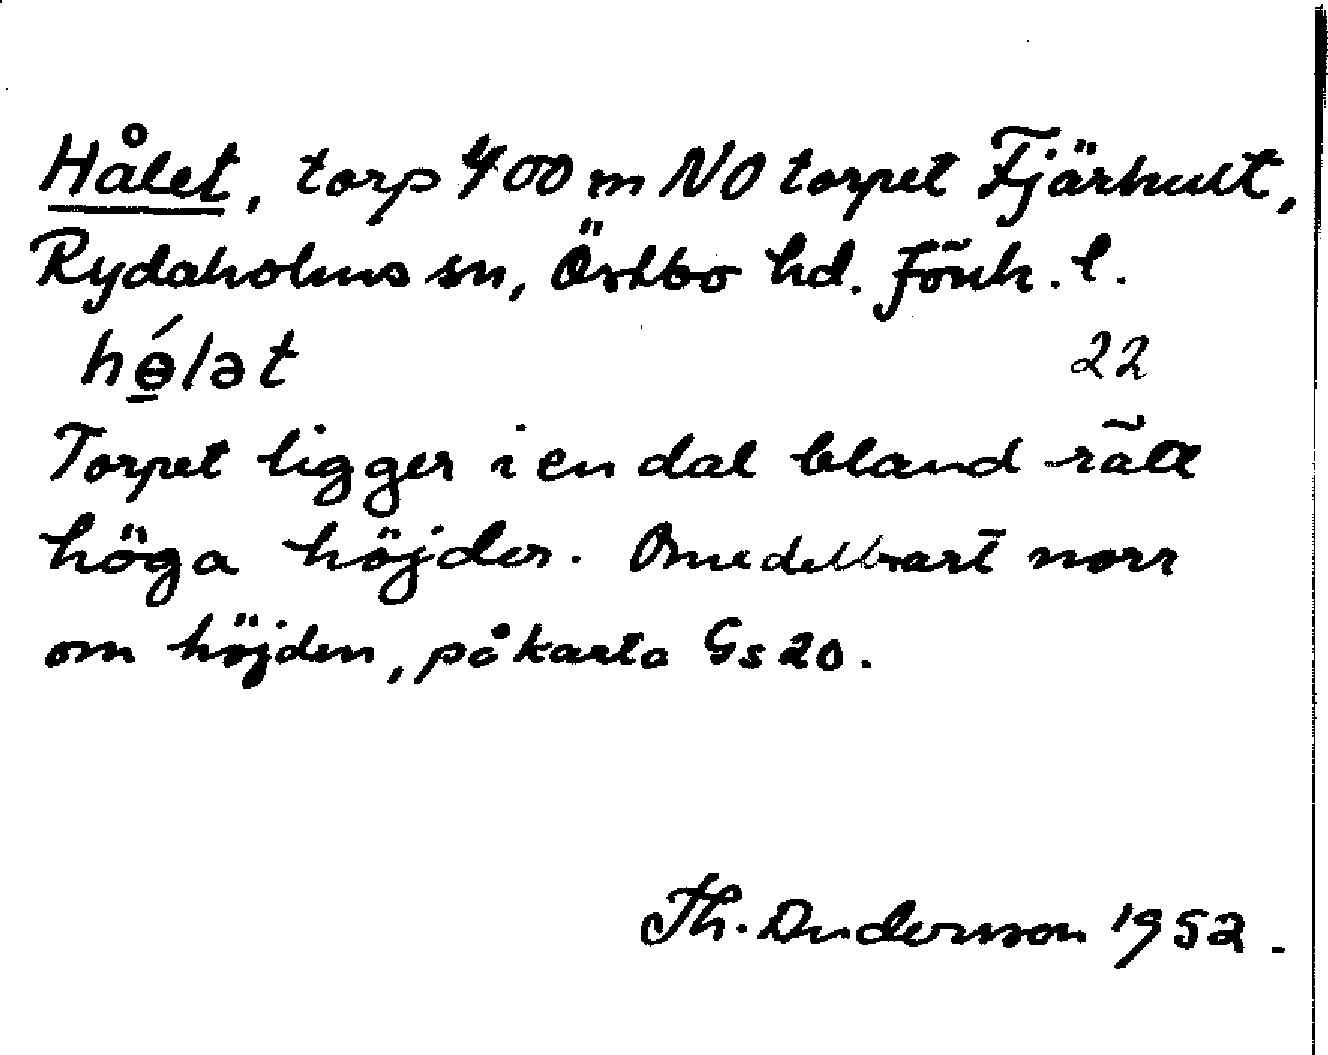 Hålet, torp 400 m NO torpet Fjärhult,
Rydaholms sn, Östbo hd. Jönk. l.
hɵ́lət 22
Torpet ligger i en dal bland rätt
höga höjder. Omedelbart norr
om höjden, på karta Gs 20.
Th. Andersson 1952.